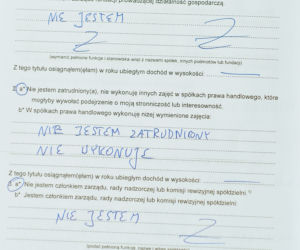 prowadzącej działalność gospodarczą.
NIE JESTEM
(wymienić pełnione funkcje i stanowiska wraz z nazwami spółek, innych podmiotów lub fundacji)
Z tego tytułu osiągnąłem(ęłam) w roku ubiegłym dochód w wysokości
a* Nie jestem zatrudniony(a), nie wykonuję innych zajęć w spółkach prawa handlowego, które
mogłyby wywołać podejrzenie o moją stronniczość lub interesowność.
b* W spółkach prawa handlowego wykonuję niżej wymienione zajęcia:
NIE JESTEM ZATRUDNIONY
NIE WYKONUJĘ
Z tego tytułu osiągnąłem(ęłam) w roku ubiegłym dochód w wysokości
3 a* Nie jestem członkiem zarządu, rady nadzorczej lub komisji rewizyjnej spółdzielni.
b* Jestem członkiem zarządu, rady nadzorczej lub komisji rewizyjnej spółdzielni
NIE JESTEM